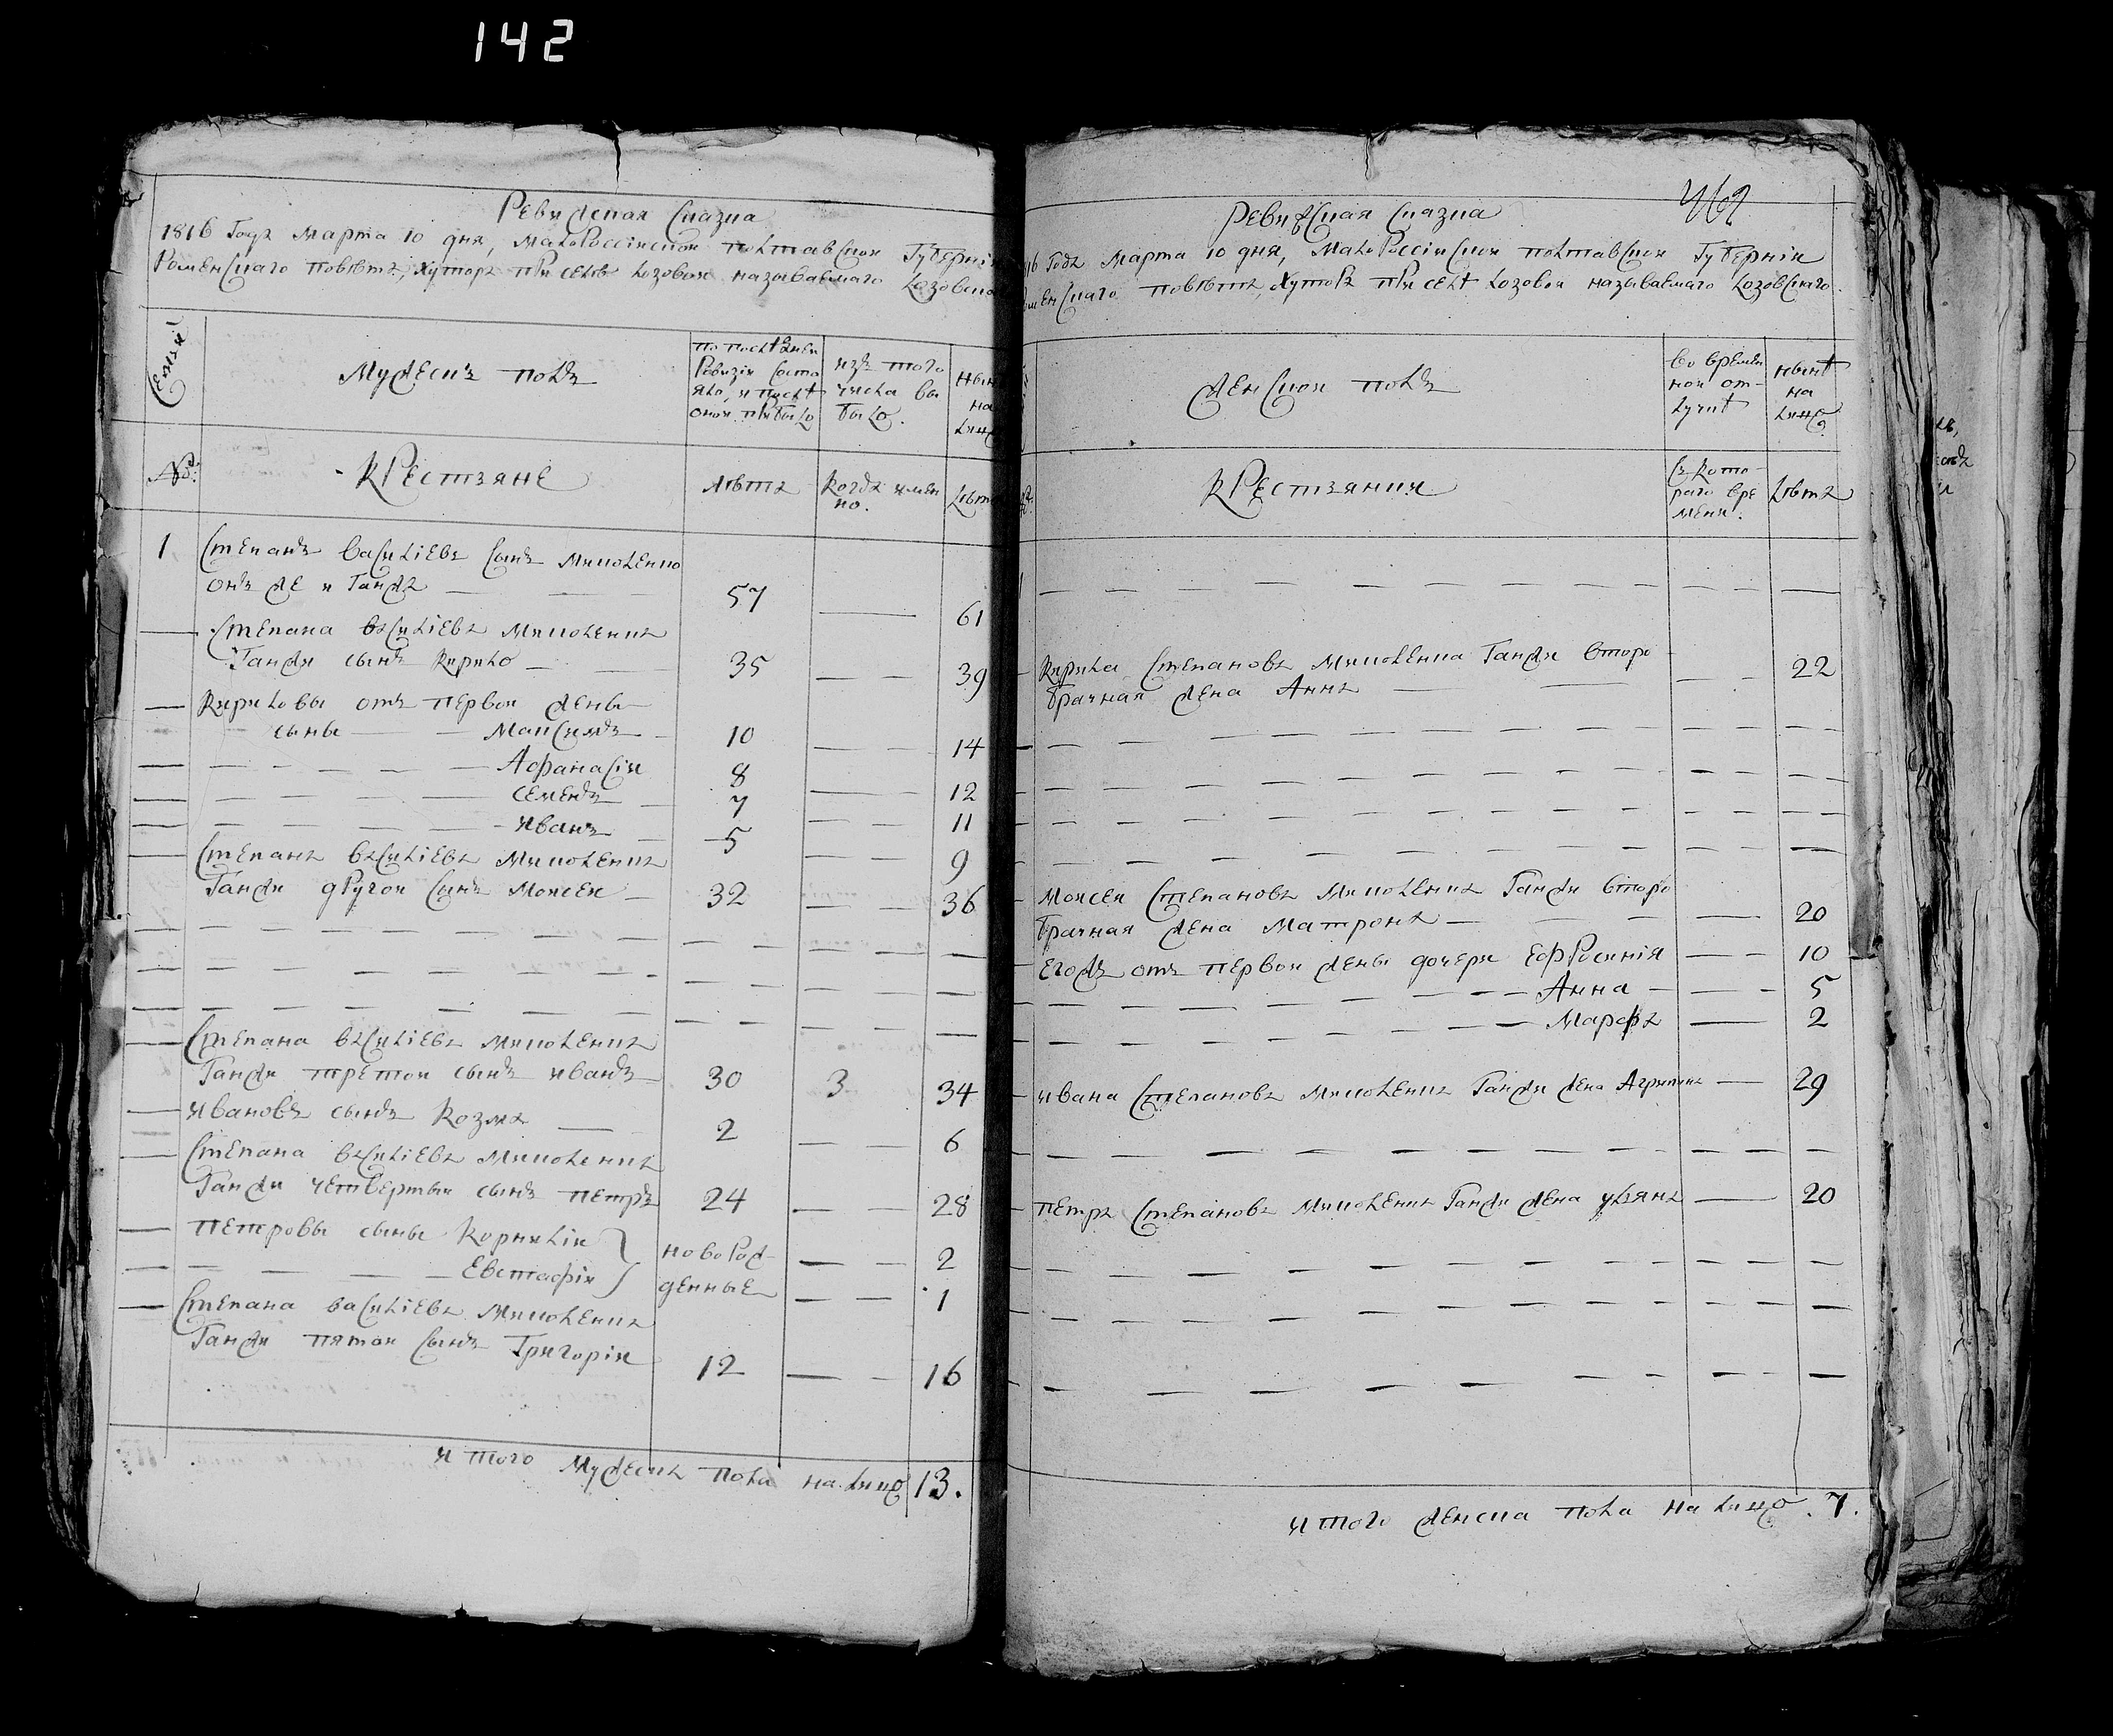 142
Ревижская Сказка
1816 Года Марта 10 дня, Малороссійской полтавской Губерніи
Роменскаго повѣта, хутора при селѣ Лозовой называемаго Лозовско
Семьи
Мужескъ полъ
По послѣдней
Ревизіи состо
яло, и послѣ
оной прибыло
изъ того
числа вы
было.
Нын
на
лиц
№
Крестьяне
Лѣта
Когда имен
но.
Лѣт
1 Степанъ Василіевъ Сынъ Миколенко
онъ же и Ганжа — 57 — 61
Степана Василіева Миколенка
Ганжи сынъ Кирило — 35 — — 39
Кириловы отъ первой жены
сыны — — Максимъ — 10 — — 14
Афанасій 8 — 12
Семенъ — 7 — — 11
Иванъ — 5 — — 9
Степана Василіева Миколенка
Ганжи другой Сынъ Моисей — 32 — — 36
Степана Василіева Миколенка
Ганжи третой сынъ Иванъ 30 3 34
Ивановъ сынъ Козма — 2 — — 6
Степана Василіева Миколенка
Ганжи четвертый сынъ Петръ 24 — — 28
Петровы сыны Корнилій } новорож- — — 2
Евстафій } денные — — 1
Степана Василіева Миколенка
Ганжи пятой Сынъ Григорій 12 — — 16
Итого Мужеска пола на лицо 13.
462
Ревижская Сказка
16 Года Марта 10 дня, Малороссійской полтавской Губерніи
оменскаго повѣта, Хутора при селѣ Лозовой называемаго Лозовскаго.
Женской полъ
Во времен
ной от-
лучкѣ
нынѣ
на
лицо
Крестьянки
Съ кото-
раго вре
мени.
Лѣта
Кирила Степанова Миколенка Ганжи второ
брачная жена Анна — — — — 22
Моисея Степанова Миколенка Ганжи второ
брачная жена Матрона — — — — 20
Егожъ отъ первой жены дочери Ефросинія — — 10
Анна — — — 5
Марфа — 2
Ивана Степанова Миколенка Ганжи жена Агрипина — 29
Петра Степанова Миколенка Ганжи жена Ульяна — 20
Итого женска пола на лицо. 7.